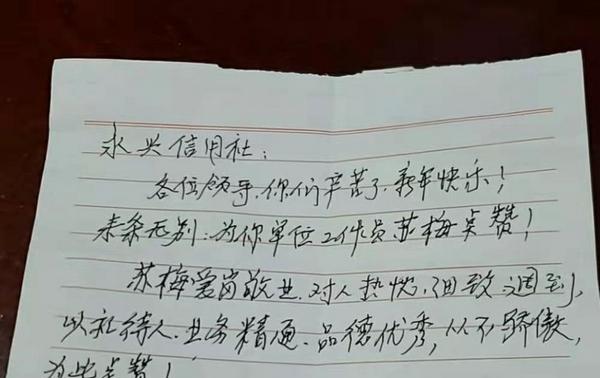 永兴信用社：
各位领导，你们辛苦了，新年快乐！
来条无别：为你单位工作员苏梅点赞！
苏梅爱岗敬业，对人热忱，细致週到，
以礼待人，业务精通、品德优秀，从不骄傲，
为此点赞！